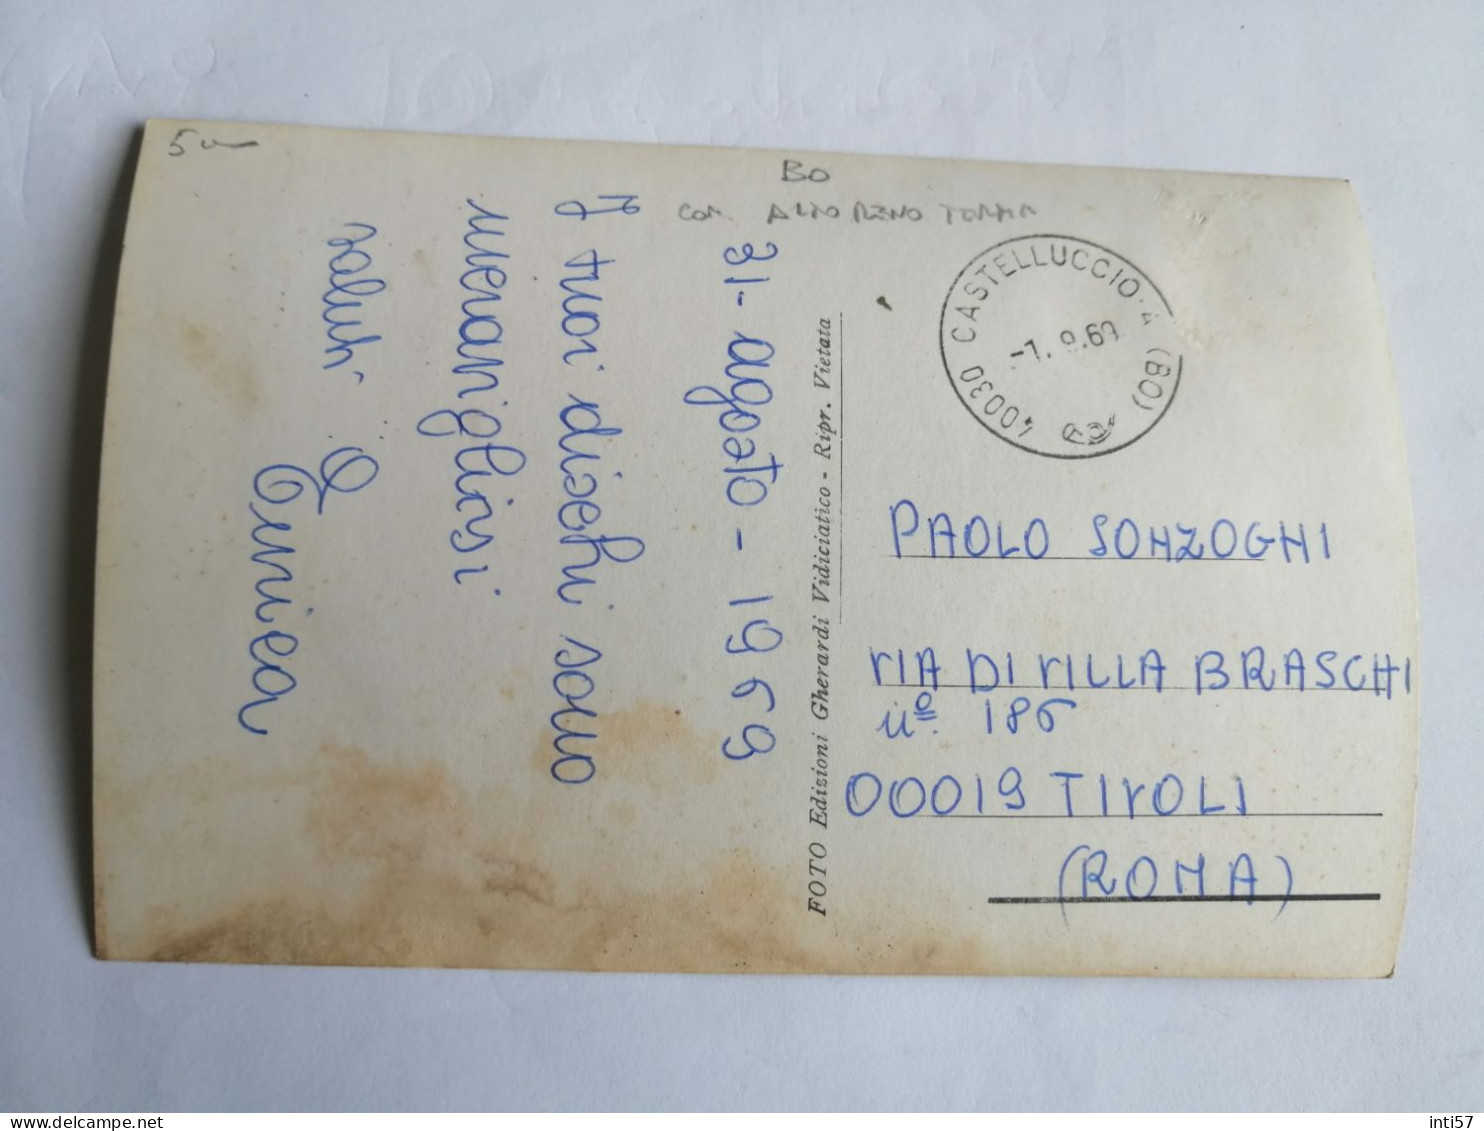 5
BO
COM ALTO RENO TERME
31- agosto - 1969
I tuoi dischi sono
meravigliosi
saluti
Enrica
FOTO Edizioni Gherardi Vidiciatico - Ripr. Vietata
40030 CASTELLUCCIO (BO)
-1. 9.69
PAOLO SONZOGNI
VIA DI VILLA BRASCHI
nº 186
00019 TIVOLI
(ROMA)
delcampe.net
inti57